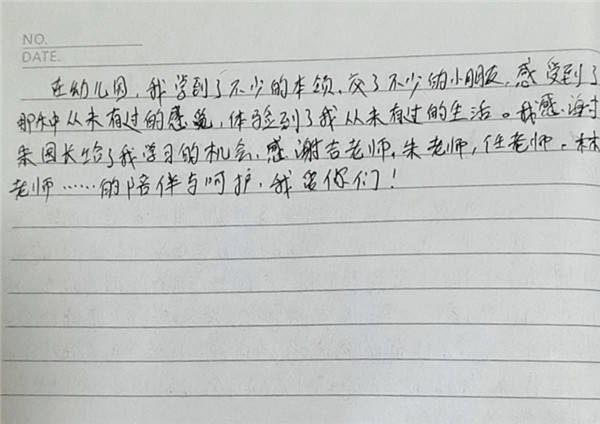 NO.
DATE.
在幼儿园，我学到了不少的本领，交了不少的小朋友，感受到了
那种从未有过的感觉，体验到了我从未有过的生活。我感谢
朱园长给了我学习的机会，感谢吉老师，朱老师，任老师，林
老师……的陪伴与呵护，我爱你们！